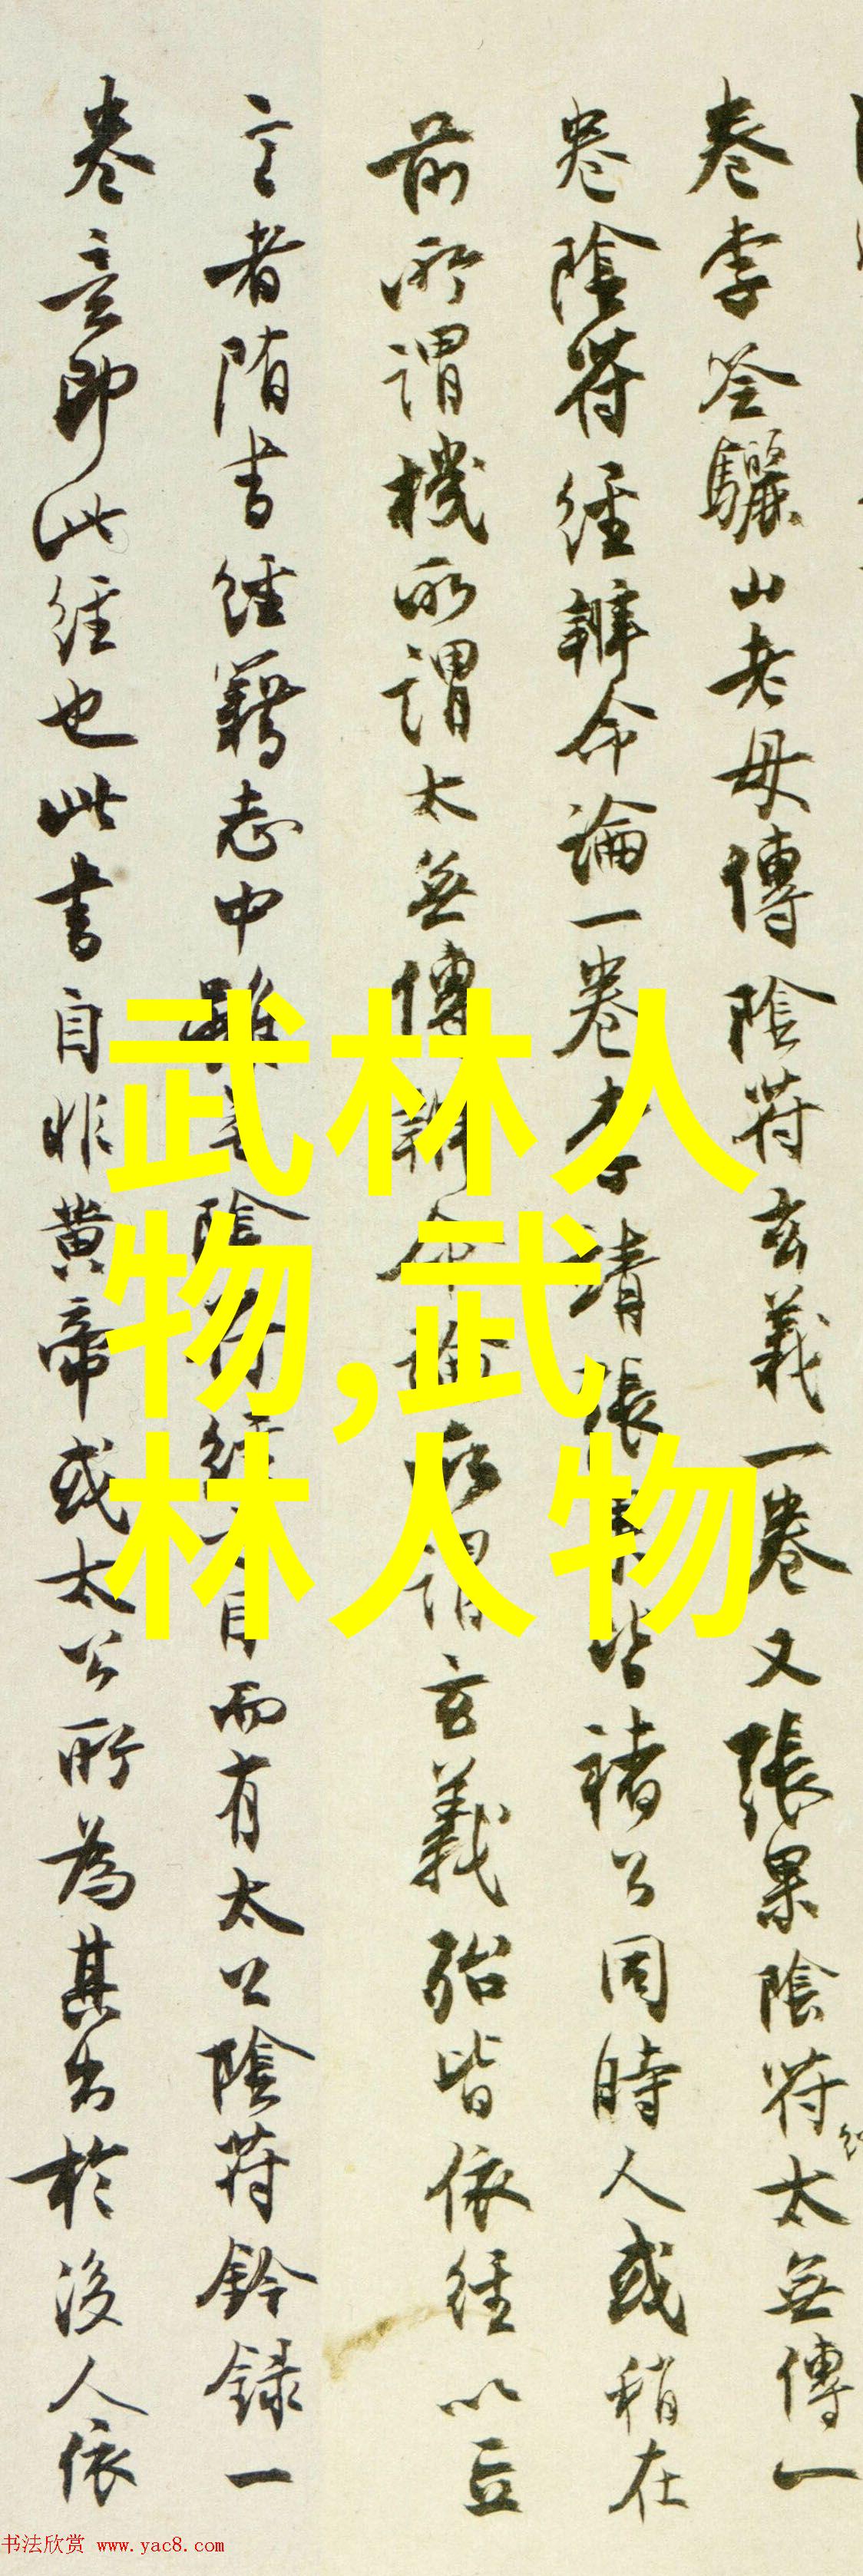 卷李筌驪山老母傳陰符玄義一卷又張果陰符太無傳一
卷陰符經辨命論一卷李靖張果皆褚公同時人或稍在
前所謂機所謂太無傳辨命論所謂玄義殆皆依經以立
言者隋書經籍志中雖無陰符經之目而有太公陰符鈐錄一
卷意即此經也此書自非黃帝或太公所為其出於後人依
武林人
物,武
林人物
书法欣赏 www.yac8.com